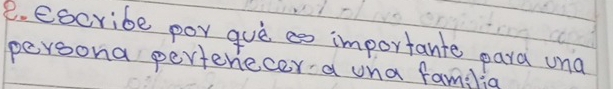 2. escribe por qué es importante para una
persona pertenecer a una familia